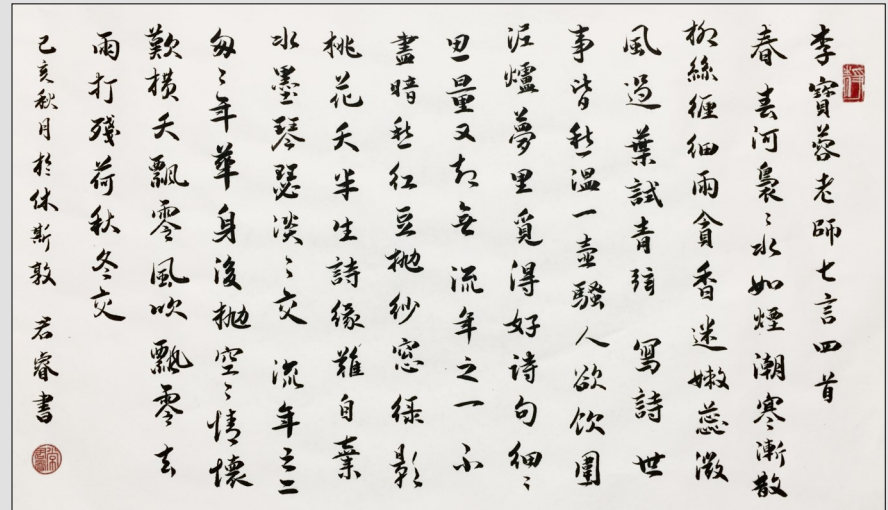 李寶蓉老師七言四首
春 春河裊〻水如煙潮寒漸散
柳絲纏細雨貪香迷嫩蕊微
風過葉試青弦 寫詩 世
事皆愁溫一壺騷人欲飲圍
泥爐夢里覓得好詩句細〻
思量又却無 流年之一 不
盡暗愁紅豆拋紗窓綠影
桃花夭半生詩緣難自棄
水墨琴瑟淡〻交 流年之二
匆〻年華身後拋空〻情懷
歎橫夭飄零風吹飄零去
雨打殘荷秋冬交
己亥秋月於休斯敦 君睿書